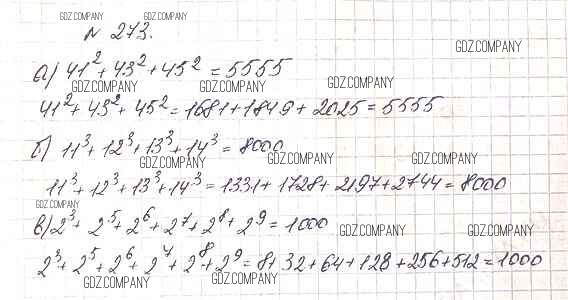 GDZ.COMPANY GDZ.COMPANY
№ 273.
GDZ.COMPANY
а) 41² + 43² + 45² = 5555
GDZ.COMPANY GDZ.COMPANY
41² + 43² + 45² = 1681 + 1849 + 2025 = 5555
б) 11³ + 12³ + 13³ + 14³ = 8000
GDZ.COMPANY GDZ.COMPANY GDZ.COMPANY
11³ + 12³ + 13³ + 14³ = 1331 + 1728 + 2197 + 2744 = 8000
GDZ.COMPANY
в) 2³ + 2⁵ + 2⁶ + 2⁷ + 2⁸ + 2⁹ = 1000
GDZ.COMPANY GDZ.COMPANY
2³ + 2⁵ + 2⁶ + 2⁷ + 2⁸ + 2⁹ = 8 + 32 + 64 + 128 + 256 + 512 = 1000
GDZ.COMPANY GDZ.COMPANY